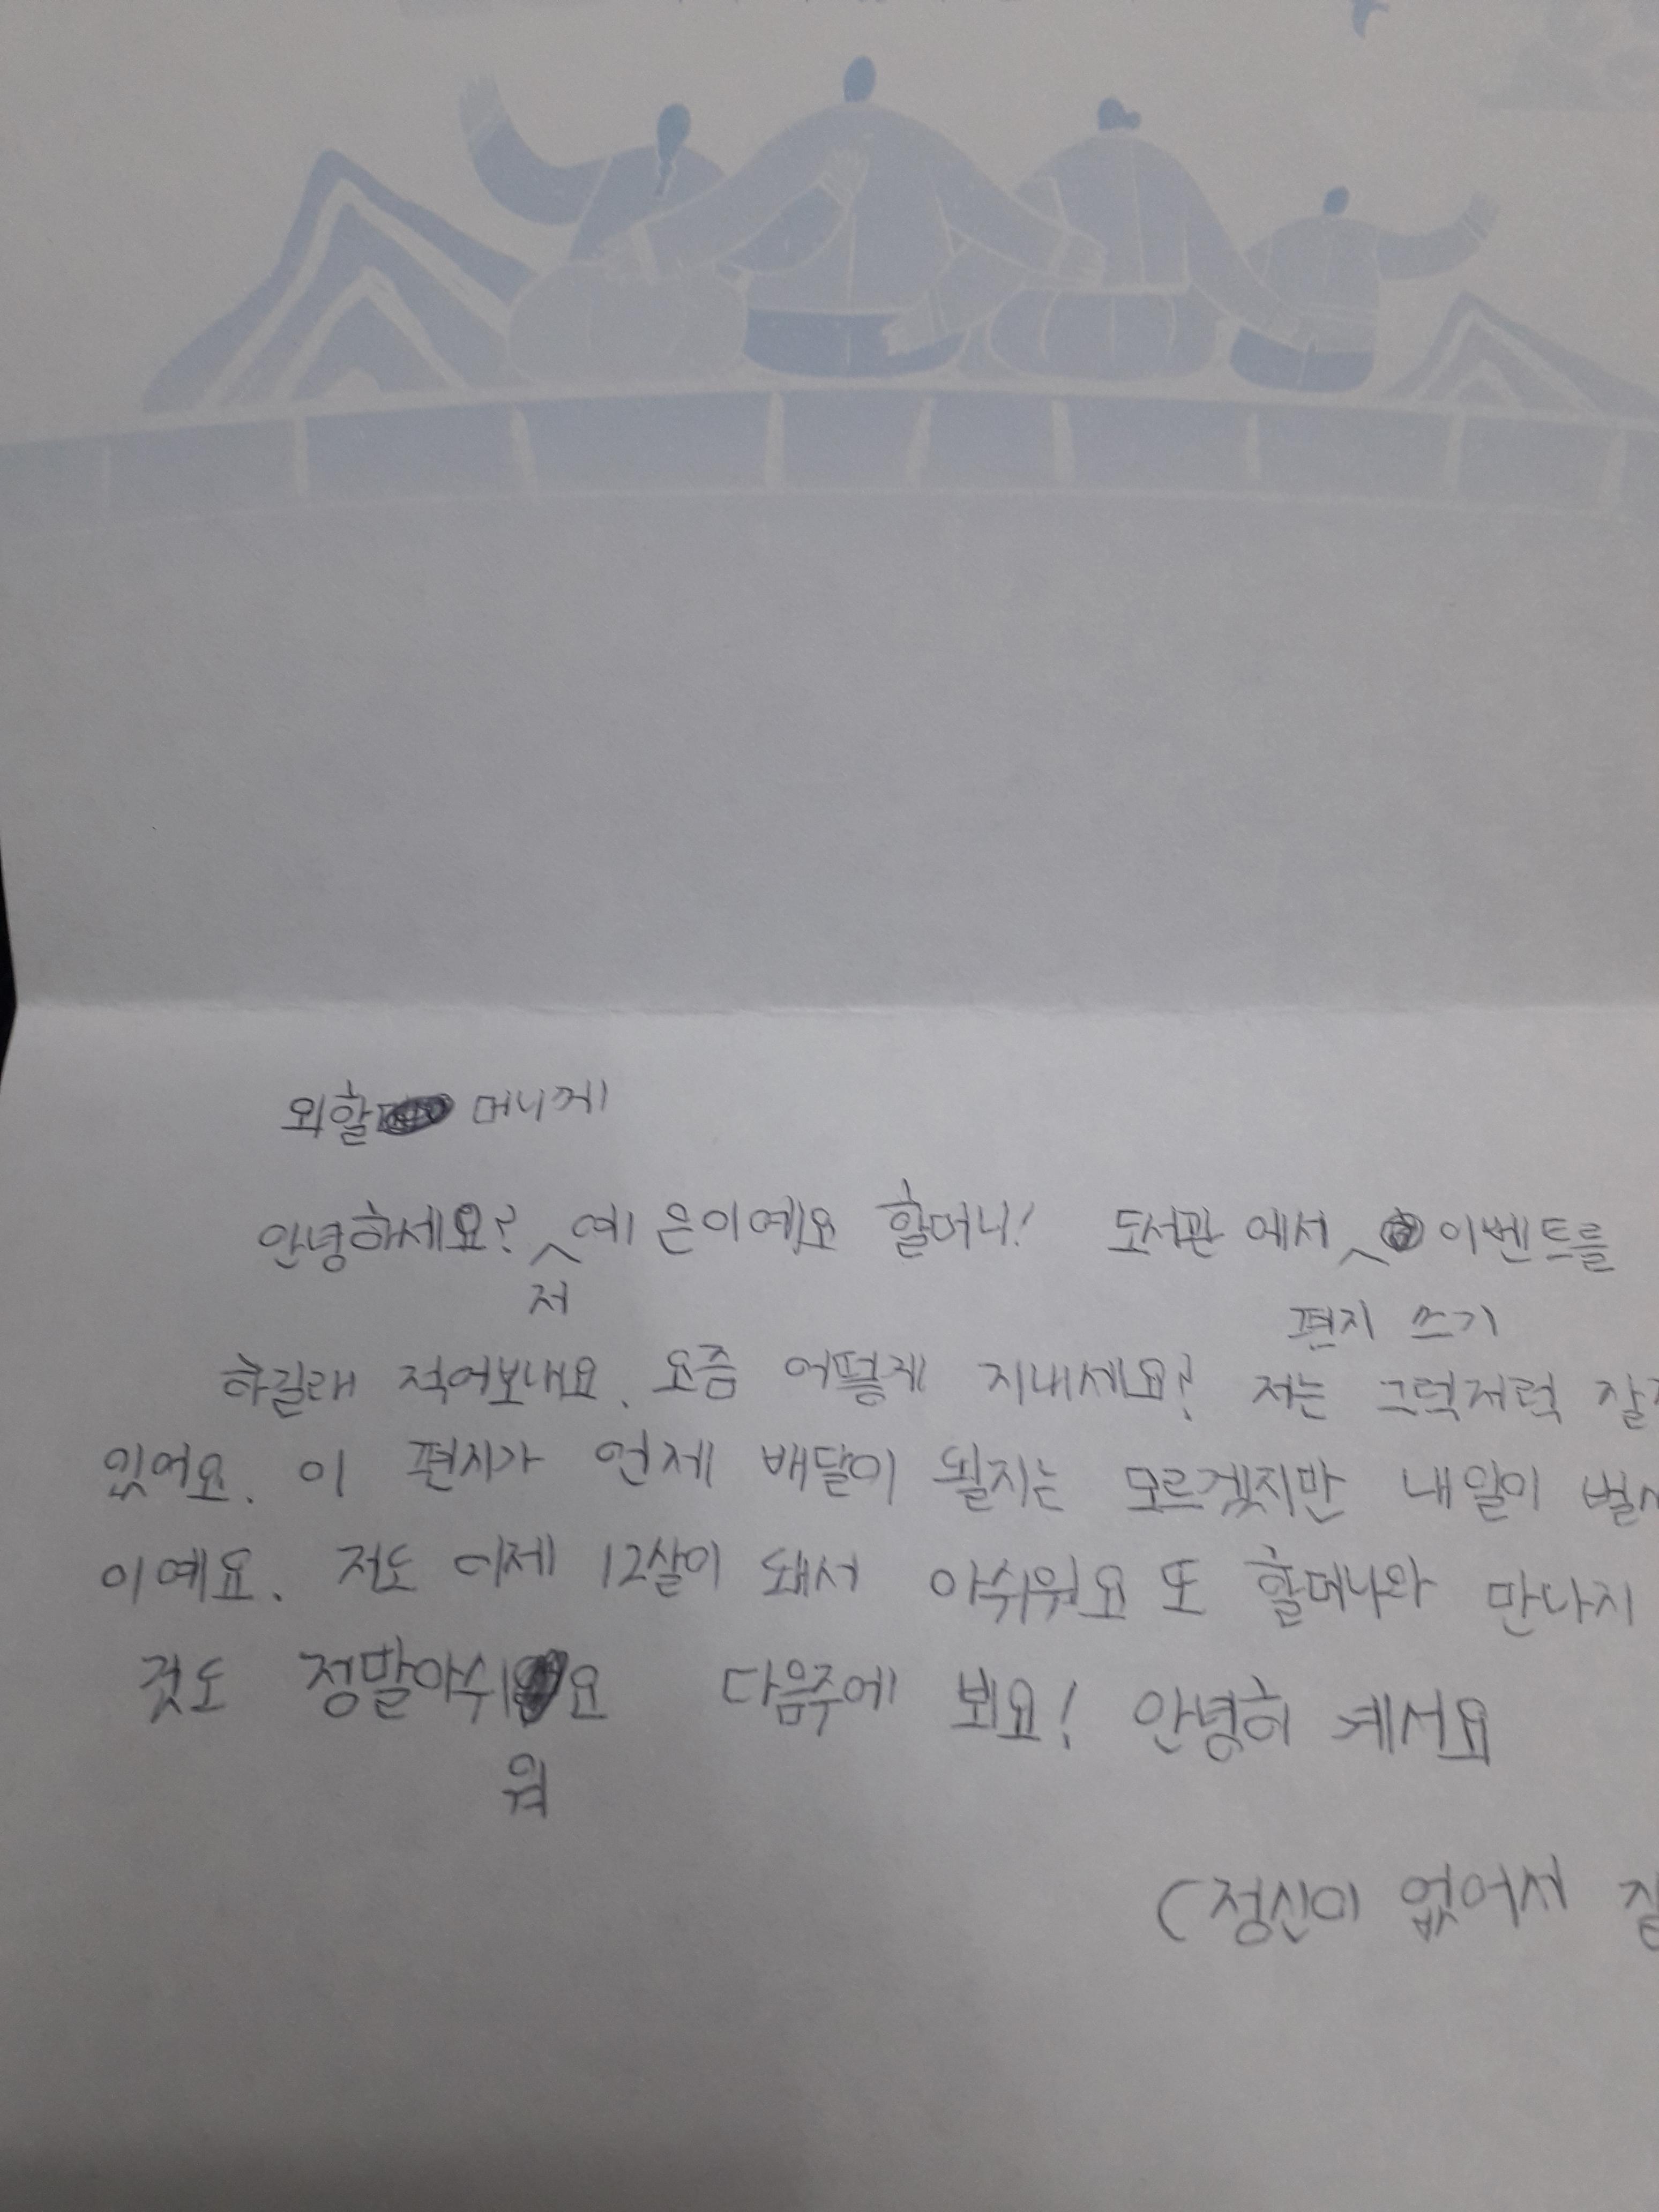 외할 머니께
안녕하세요? 저 예은이예요 할머니! 도서관 에서 편지 쓰기 이벤트를
하길래 적어보내요. 요즘 어떻게 지내세요? 저는 그럭저럭 잘
있어요. 이 편지가 언제 배달이 될지는 모르겠지만 내일이 벌써
이예요. 저도 이제 12살이 돼서 아쉬워요 또 할머니와 만나지
것도 정말아쉬워요 다음주에 뵈요! 안녕히 계서요
(정신이 없어서